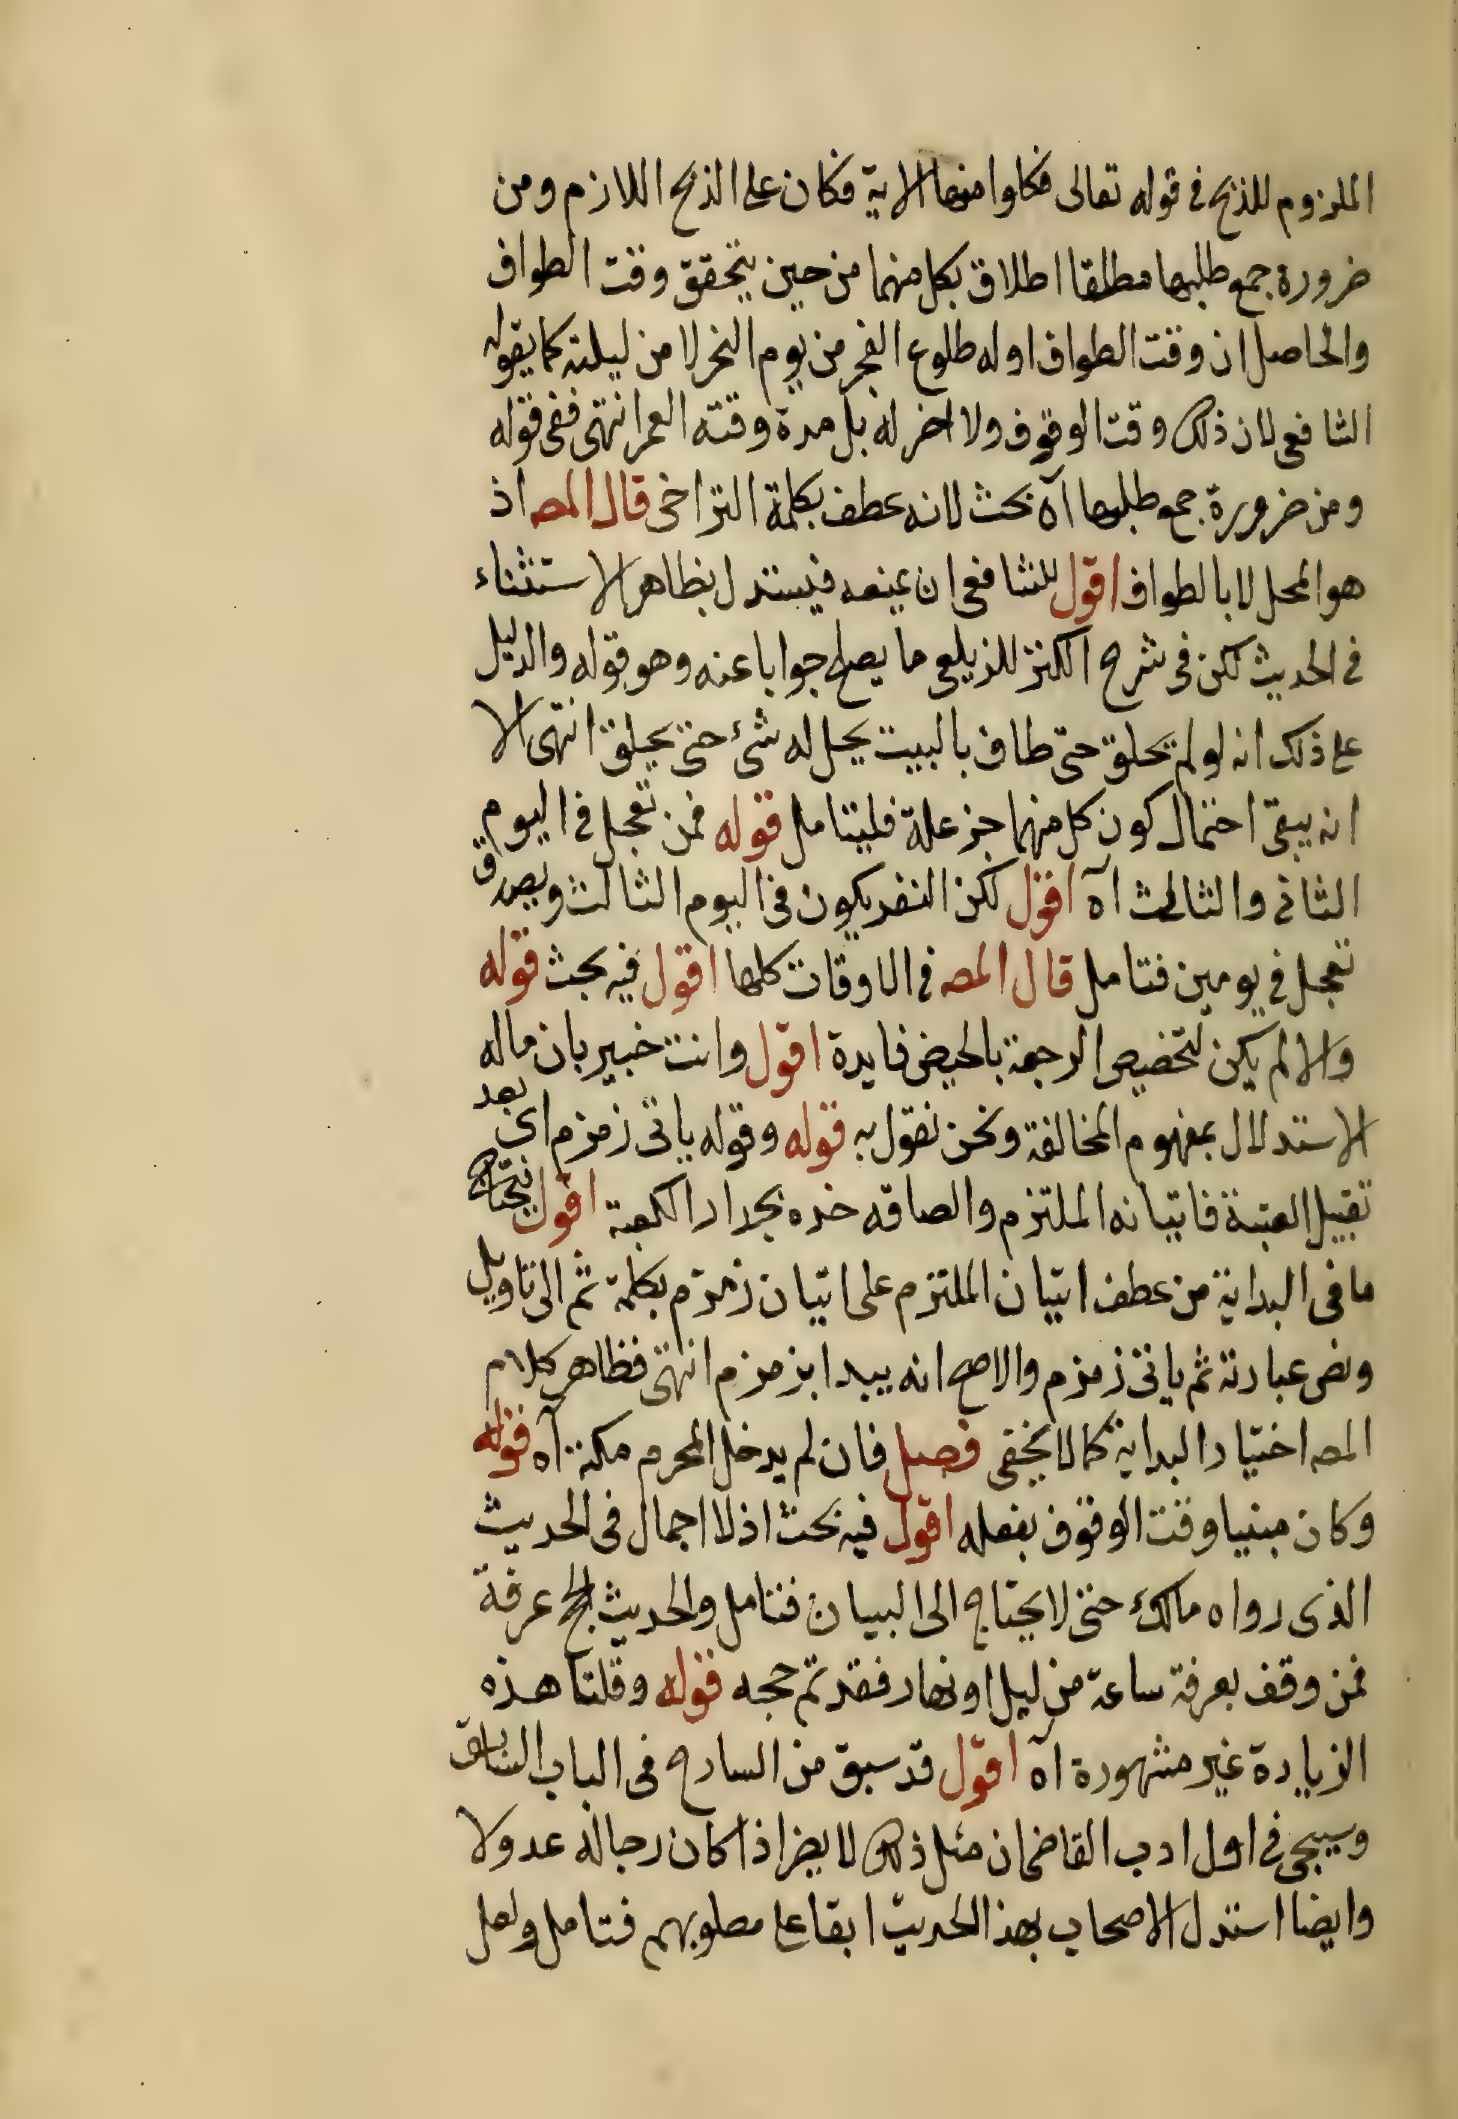 الملزوم للذبح في قوله تعالى فكلوا منها الاية فكان على الذبح اللازم ومن
ضرورة جمع طلبها مطلقا اطلاق بكل منهما من حين يتحقق وقت الطواف
والحاصل ان وقت الطواف اوله طلوع الفجر من يوم النحر لا من ليلته كما يقوله
الشافعى لان ذلك وقت الوقوف ولا اخر له بل مدة وقته العمر انتهى ففى قوله
ومن ضرورة جمع طلبهما آه بحث لانه عطف بكلمة التراخى قال المصه اذ
هو المحل لا بالطواف اقول للشافعى ان يمنعه فيستدل بظاهر الاستثناء
فى الحديث لكن فى شرح الكنز للزيلعى ما يصلح جوابا عنه وهو قوله والدليل
على ذلك انه لو لم يحلق حتى طاف بالبيت يحل له شئ حتى يحلق انتهى الا
انه يبقى احتمال كون كل منهما جز علة فليتامل قوله فمن تعجل فى اليوم
الثانى والثالث آه اقول لكن النفر يكون فى اليوم الثالث ويصدق
تعجل فى يومين فتامل قال المصه فى الاوقات كلها اقول فيه بحث قوله
والا لم يكن لتخصيص الرجعة بالحيض فايدة اقول وانت خبير بان ماله
الاستدلال بمفهوم المخالفة ونحن نقول به قوله وقوله ياتى زمزم اى بعد
تقبيل العتبة فاتيانه الملتزم والصاقه خده بجدار الكعبة اقول يحتاج
ما فى البداية من عطف اتيان الملتزم على اتيان زمزم بكلمة ثم الى تاويل
ونص عبارته ثم ياتى زمزم والاصح انه يبدا بزمزم انتهى فظاهر كلام
المصه اختيار البداية كما لا يخفى فصل فان لم يدخل المحرم مكة آه قوله
وكان مبنيا وقت الوقوف بفعله اقول فيه بحث اذ لا اجمال فى الحديث
الذى رواه مالك حتى لا يحتاج الى البيان فتامل والحديث الحج عرفة
فمن وقف بعرفة ساعة من ليل او نهار فقد تم حجه قوله وقلنا هذه
الزيادة غير مشهورة آه اقول قد سبق من الشارح فى الباب السابق
وسيجى فى اول ادب القاضى ان مثل ذلك لا يضر اذا كان رجاله عدولا
وايضا استدل الاصحاب بهذ الحديث ابقا على مطلوبهم فتامل ولعل